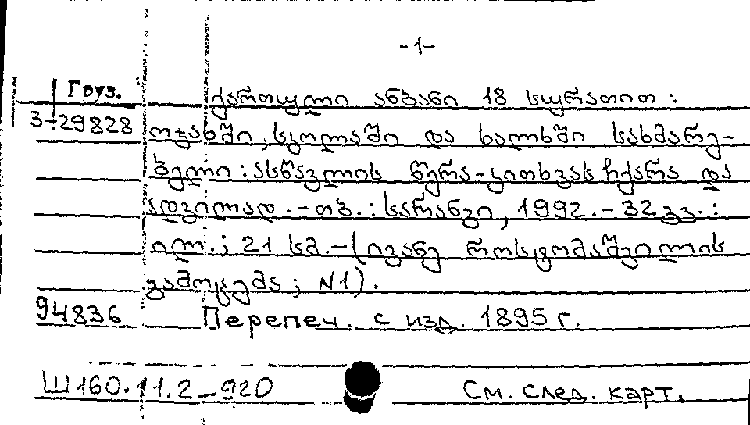 -1-
Груз. ქართული ანბანი 18 სურათით:
3-29828 ოჯახში, სკოლაში და ხალხში სახმარე-
ბელი: ასწავლის წერა-კითხვას ჩქარა და
ადვილად. -თბ.: სარანგი, 1992. -32 გვ.:
ილ.; 21 სმ. -(ივანე როსტომაშვილის
გამოცემა; N1).
94836 Перепеч. с изд. 1895 г.
Ш160.11.2-920 См. след. карт.